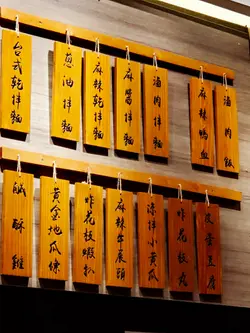 台式乾拌麵
蔥油拌麵
麻辣乾拌麵
麻醬拌麵
滷肉拌麵
麻辣鴨血
滷肉飯
鹹酥雞
黃金地瓜條
炸花枝蝦扒
麻辣牛展頭
涼拌小黃瓜
炸花枝丸
皮蛋豆腐